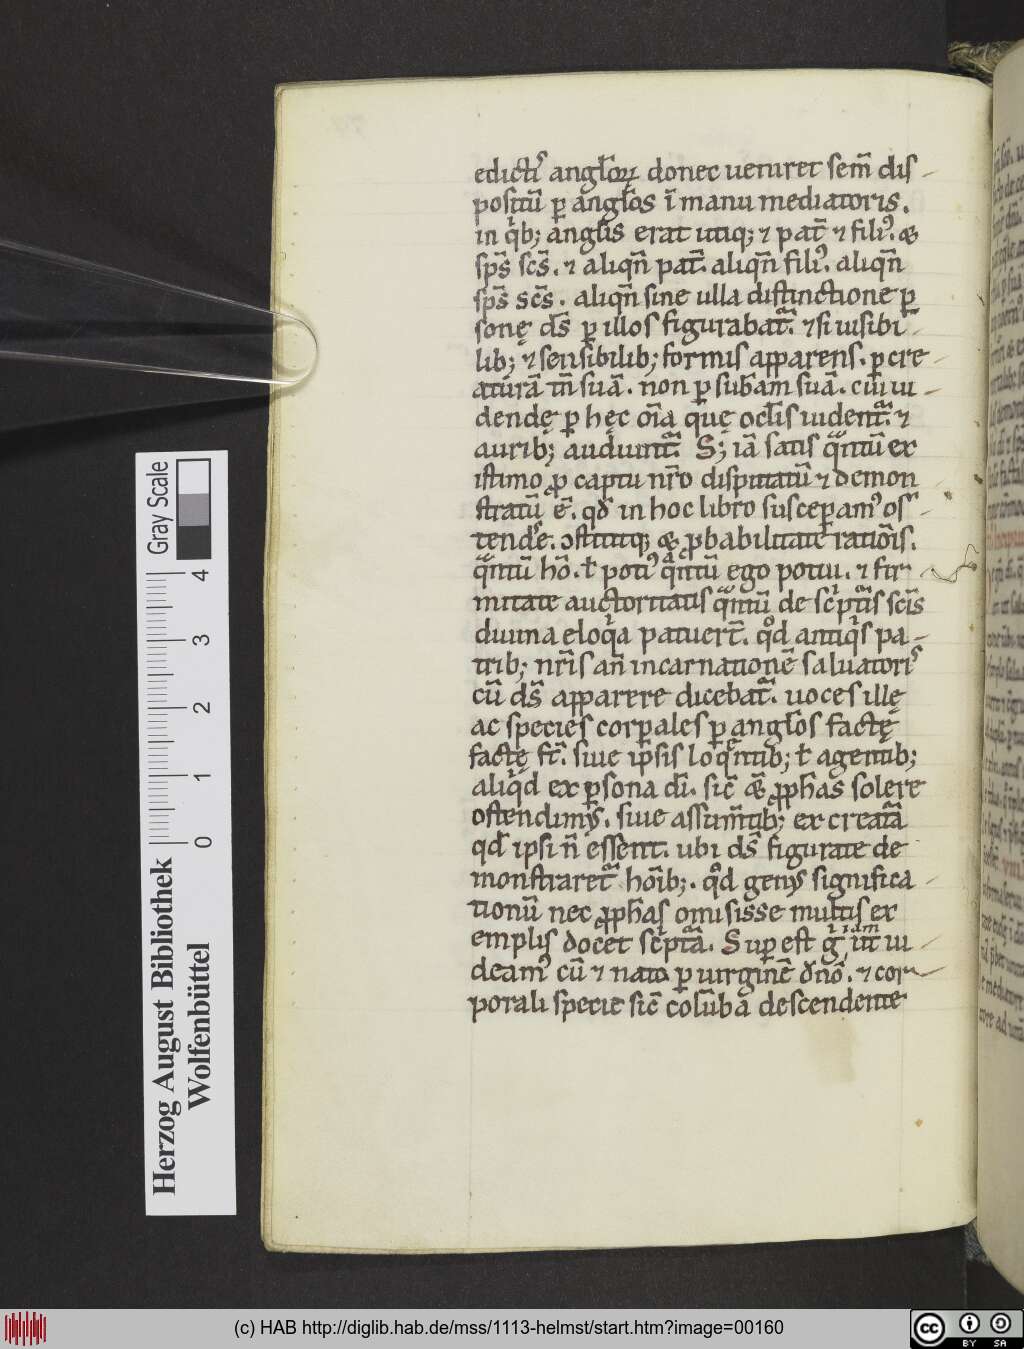 edictis anglorꝝ donec ueniret sem̄ dis
positū ꝑ angl̄os ī manu mediatoris.
in qͥb; angl̄is erat utiq; ⁊ pat̄ ⁊ filiꝰ. &
sp̄s sc̄s. ⁊ aliqn̄ pat̄. aliqn̄ filiꝰ. aliqn̄
sp̄s sc̄s. aliqn̄ sine ulla distinctione ꝑ
sonę ds̄ ꝑ illos figurabat᷑. ⁊ si uisibi
lib; ⁊ sensibilib; formis apparens. ꝑ cre
aturā tn̄ suā. non ꝑ sub̄am suā. cui ui
dendę ꝑ hęc om̄a quę ocl̄is uident᷑. ⁊
aurib; audiunt᷑. S; iā satis qͣntū ex
istimo ꝓ captu nr̄o disputatū ⁊ demon
stratū ē. qd̄ in hoc libro susceꝑamꝰ os
tendˢe. ↄstititq; & ꝓbabilitate ratiōis.
qͣntū hō. ł potiꝰ qͣntū ego potui. ⁊ fir
mitate auctoritatis qͣntū de scͥptͥs scīs
diuina eloqͥa patuert̄. qͦd antiqͥs pa
trib; nr̄is an̄ incarnationē saluatoris
cū ds̄ apparere dicebat᷑. uoces illę
ac species corꝑales ꝑ angl̄os factę
factę st̄. siue ipsis loqͣntib; ł agentib;
aliqͥd ex ꝑsona dī. sic̄ & ꝓph̄as solere
ostendimꝰ. siue assum̄tib; ex creatͣa
qd̄ ipsi n̄ essent. ubi ds̄ figurate de
monstraret᷑ hōib;. qͦd genꝰ significa
tionū nec ꝓph̄as omisisse multis ex
emplis docet scͥptͣa. Suꝑest gͥ iam ut̄ ui
deamꝰ cū ⁊ nato ꝑ uirginē dn̄o. ⁊ cor
porali specie sic̄ colūba descendente
Gray Scale
0 1 2 3 4
Herzog August Bibliothek
Wolfenbüttel
(c) HAB http://diglib.hab.de/mss/1113-helmst/start.htm?image=00160
cc BY SA